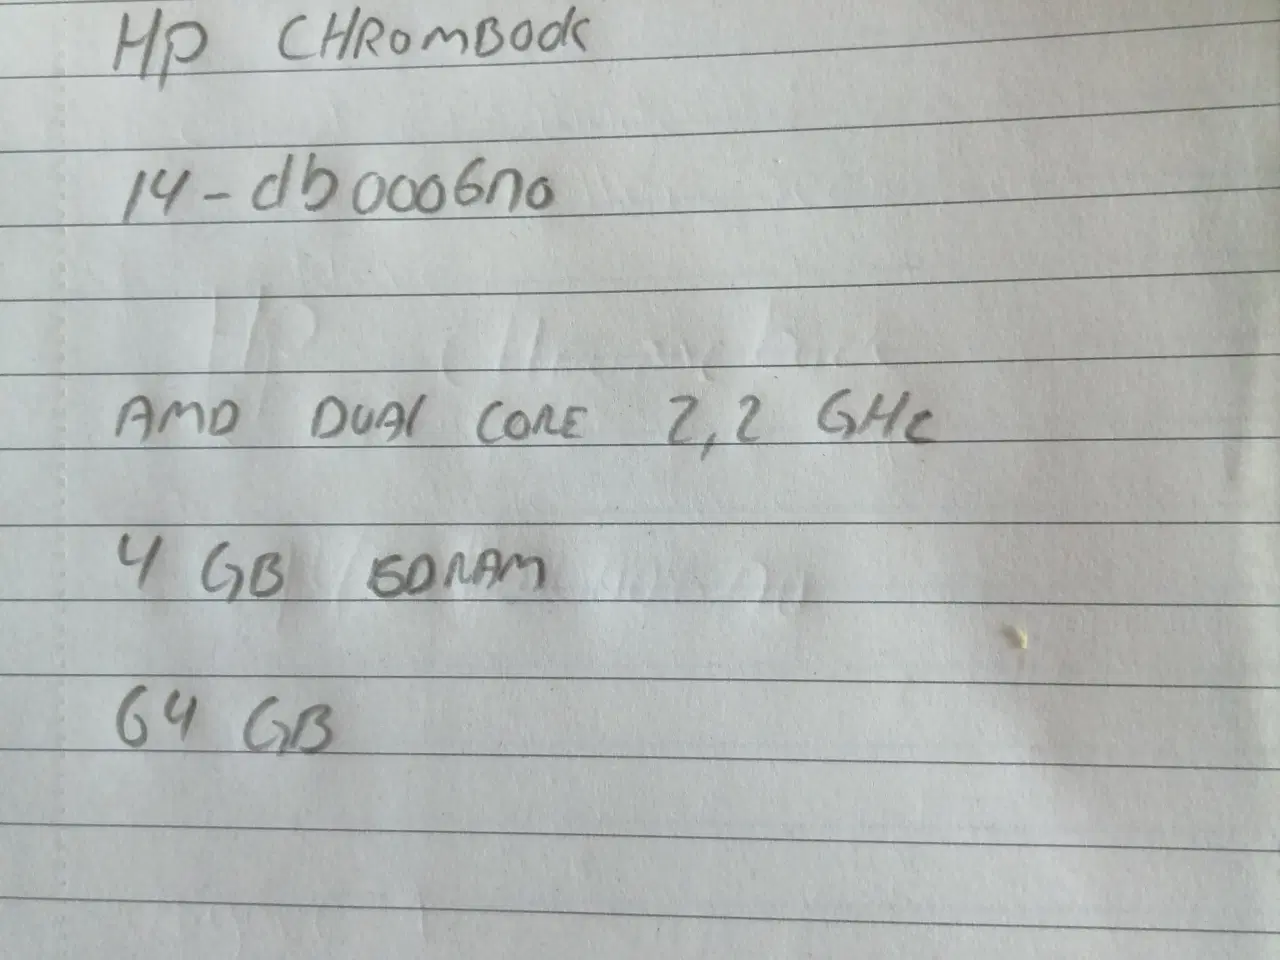 HP CHROMBOOK
14-db0006no
AMD DUAL CORE 2,2 GHz
4 GB SDRAM
64 GB